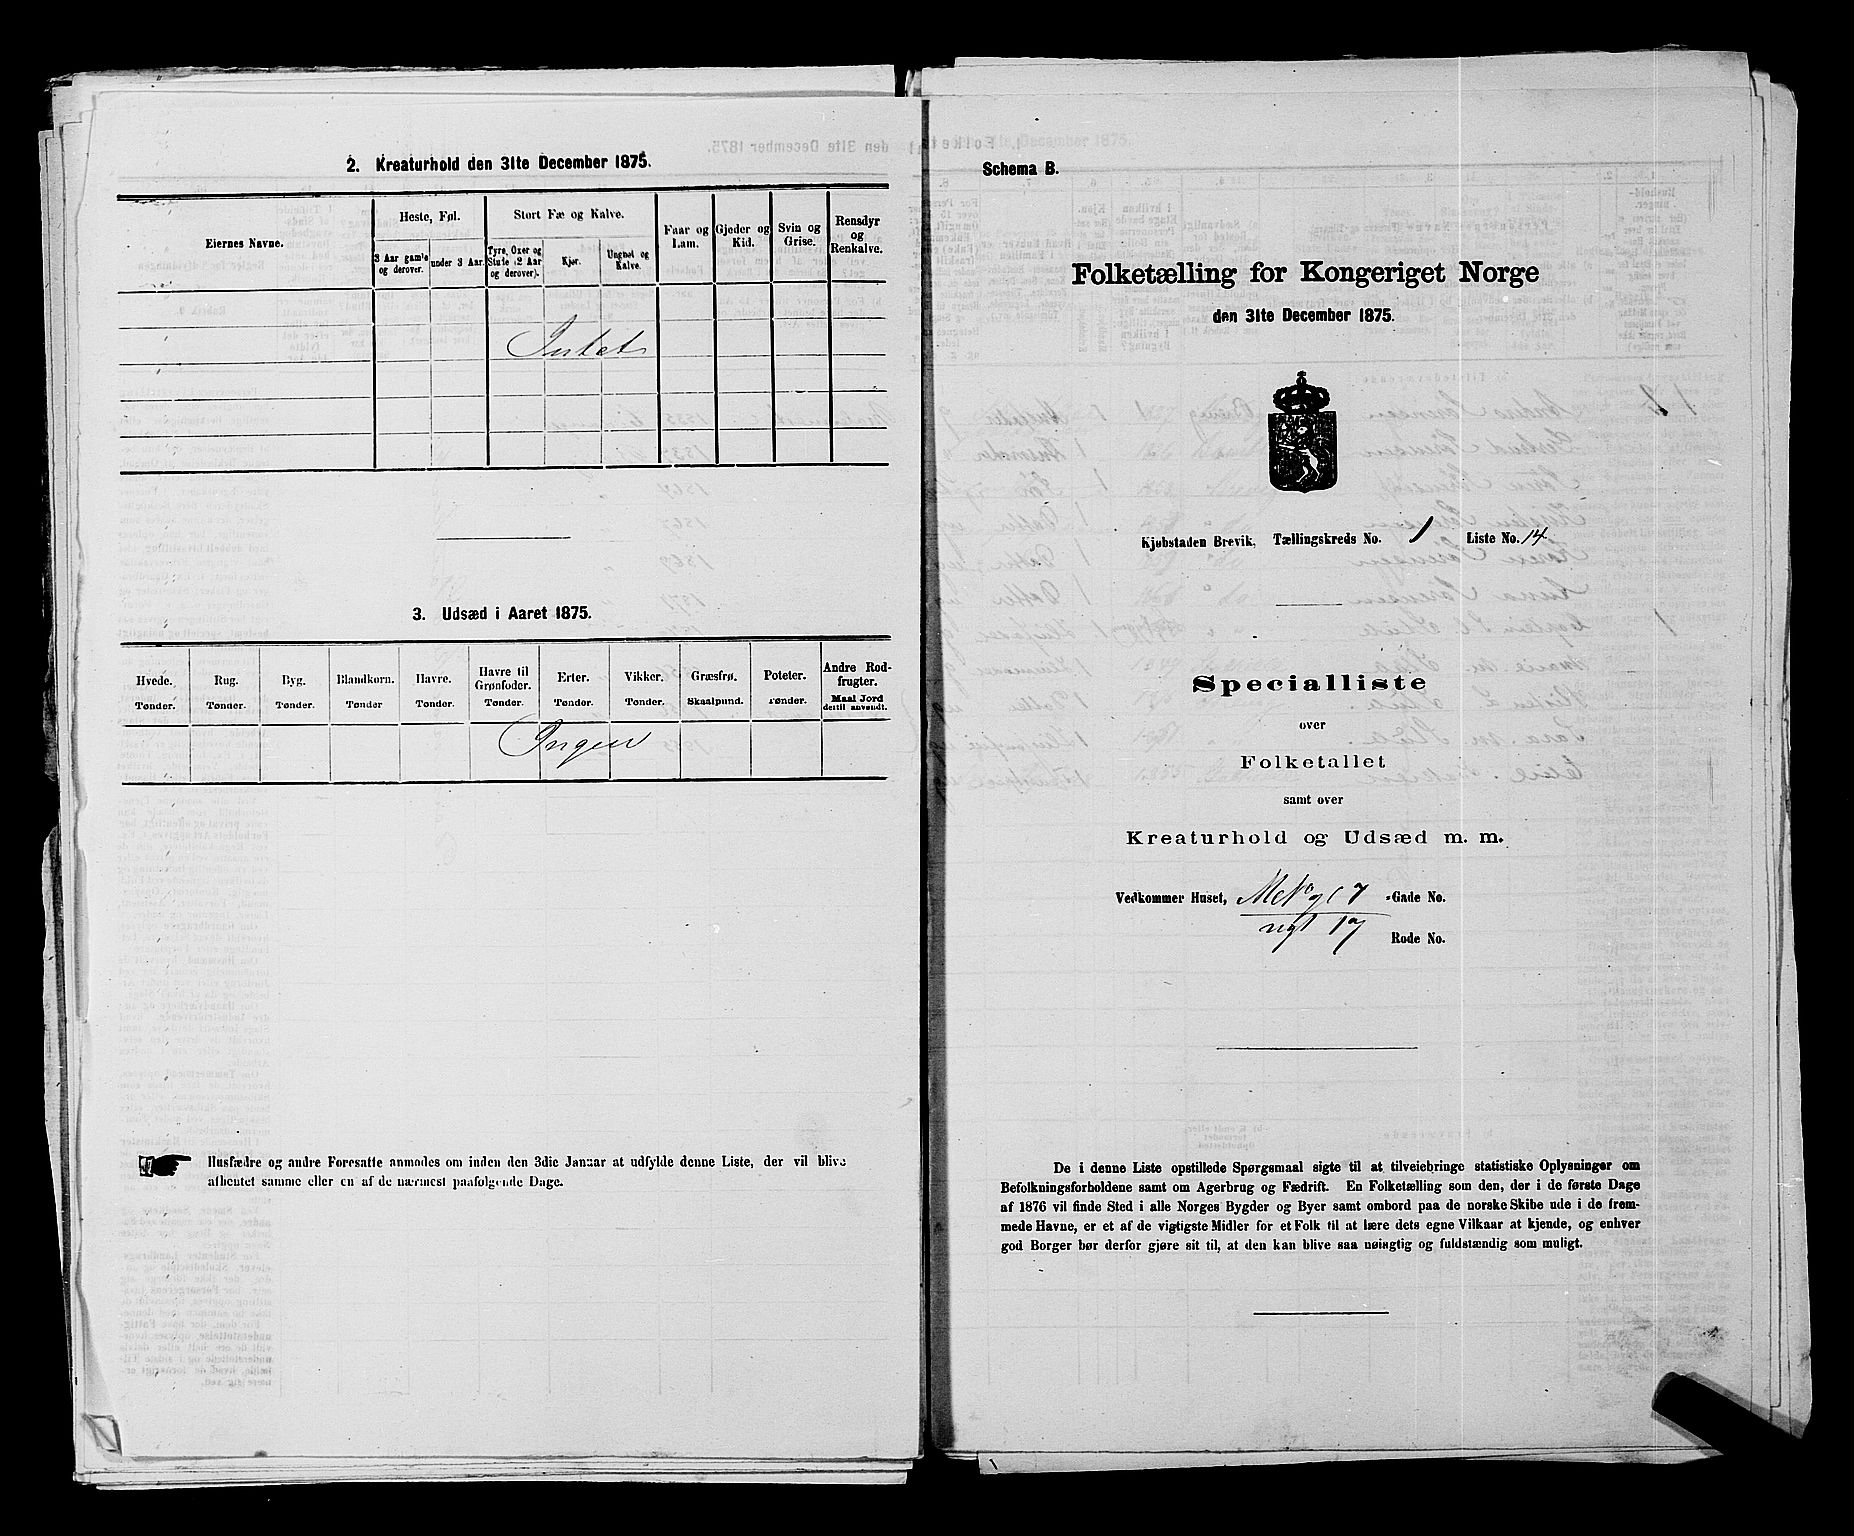 2. Kreaturhold den 31te December 1875.
Eiernes Navne.
Heste, Føl.
3 Aar gamle og derover.
under 3 Aar.
Stort Fæ og Kalve.
Tyre, Oxer og Stute (2 Aar og derover).
Kjør.
Ungnøt og Kalve.
Faar og Lam.
Gjeder og Kid.
Svin og Grise.
Rensdyr og Renkalve.
Intet
3. Udsæd i Aaret 1875.
Hvede. Tønder.
Rug. Tønder.
Byg. Tønder.
Blandkorn. Tønder
Havre. Tønder.
Havre til Grønfoder. Tønder.
Erter. Tønder.
Vikker. Tønder.
Græsfrø. Skaalpund.
Poteter. Tønder.
Andre Rodfrugter. Maal Jord dertil anvendt.
Ingen
Husfædre og andre Foresatte anmodes om inden den 3die Januar at udfylde denne Liste, der vil blive
afhentet samme eller en af de nærmest paafølgende Dage.
Schema B.
Folketælling for Kongeriget Norge
den 31te December 1875.
Kjøbstaden Brevik. Tællingskreds No. 1 Liste No. 14
Specialliste
over
Folketallet
samt over
Kreaturhold og Udsæd m. m.
Vedkommer Huset, -Gade No.
17
Rode No.
De i denne Liste opstillede Spørgsmaal sigte til at tilveiebringe statistiske Oplysninger om
Befolkningsforholdene samt om Agerbrug og Fædrift. En Folketælling som den, der i de første Dage
af 1876 vil finde Sted i alle Norges Bygder og Byer samt ombord paa de norske Skibe ude i de frem-
mede Havne, er et af de vigtigste Midler for et Folk til at lære dets egne Vilkaar at kjende, og enhver
god Borger bør derfor gjøre sit til, at den kan blive saa nøiagtig og fuldstændig som muligt.